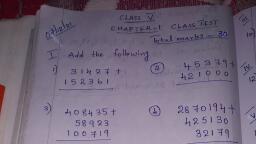 CLASS V
CHAPTER-1 CLASS TEST
Total marks - 30
I Add the following
1) 31427 + 152361
2) 45379 + 421000
3) 408435 + 58923 100719
4) 2870194 + 425130 32179